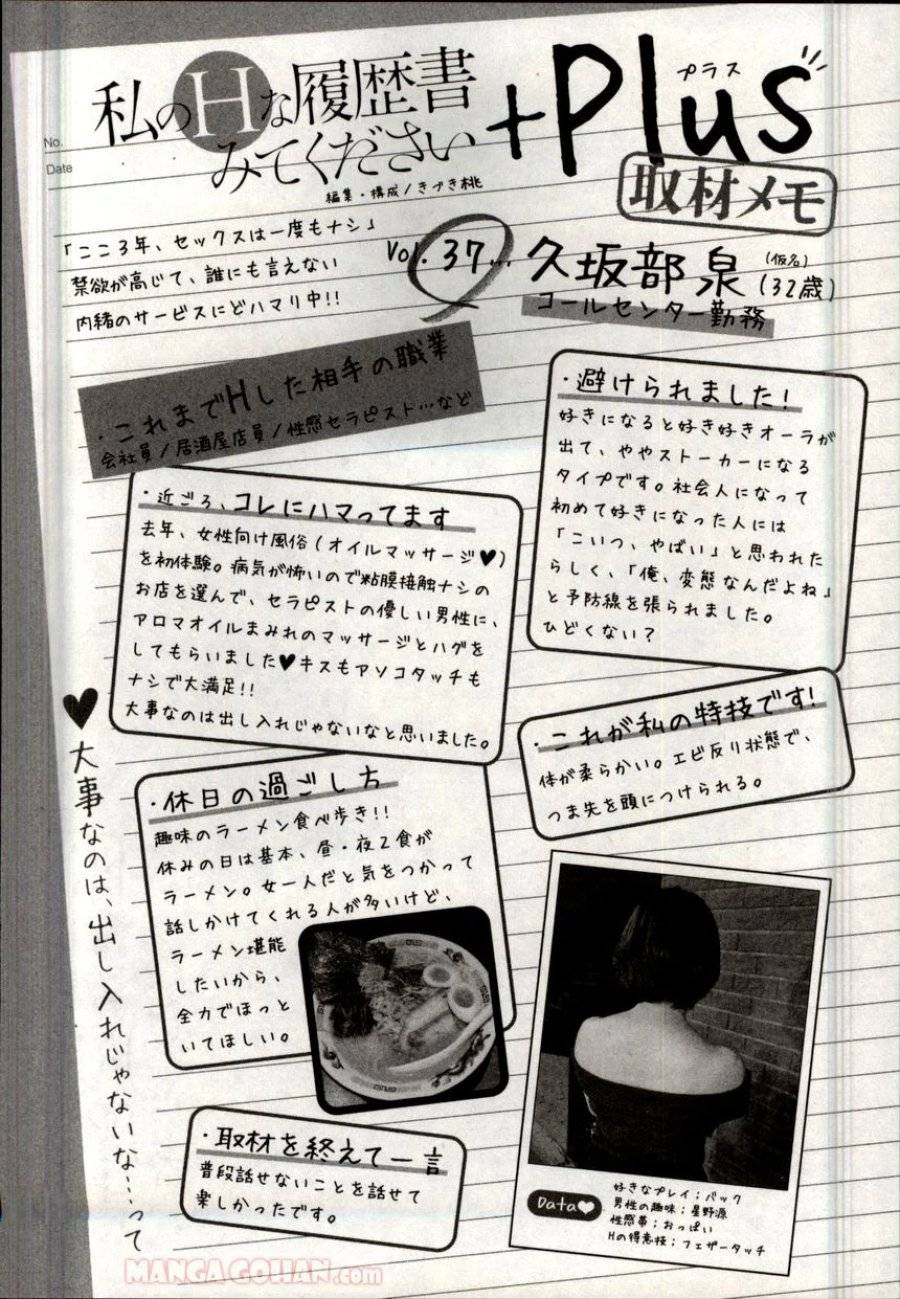 No.
Date
私のHな履歴書
みてください
+Plus
プラス
編集・構成/きづき桃
取材メモ
「ここ3年、セックスは一度もナシ」
禁欲が高じて、誰にも言えない
内緒のサービスにどハマり中!!
Vol.37…
久坂部泉
(仮名)
(32歳)
コールセンター勤務
・これまでHした相手の職業
会社員/居酒屋店員/性感セラピスト…など
・近ごろ、コレにハマってます
去年、女性向け風俗(オイルマッサージ♥)
を初体験。病気が怖いので粘膜接触ナシの
お店を選んで、セラピストの優しい男性に、
アロマオイルまみれのマッサージとハグを
してもらいました♥キスもアソコタッチも
ナシで大満足!!
大事なのは出し入れじゃないなと思いました。
・避けられました!
好きになると好き好きオーラが
出て、ややストーカーになる
タイプです。社会人になって
初めて好きになった人には
「こいつ、やばい」と思われた
らしく、「俺、変態なんだよね」
と予防線を張られました。
ひどくない?
・これが私の特技です!
体が柔らかい。エビ反り状態で、
つま先を頭につけられる。
・休日の過ごし方
趣味のラーメン食べ歩き!!
休みの日は基本、昼・夜2食が
ラーメン。女一人だと気をつかって
話しかけてくれる人が多いけど、
ラーメン堪能
したいから、
全力でほっと
いてほしい。
♥大事なのは、出し入れじゃないな…って
・取材を終えて一言
普段話せないことを話せて
楽しかったです。
Data♥
好きなプレイ;バック
男性の趣味;星野源
性感帯;おっぱい
Hの得意技;フェザータッチ
MANGAGOHAN.com